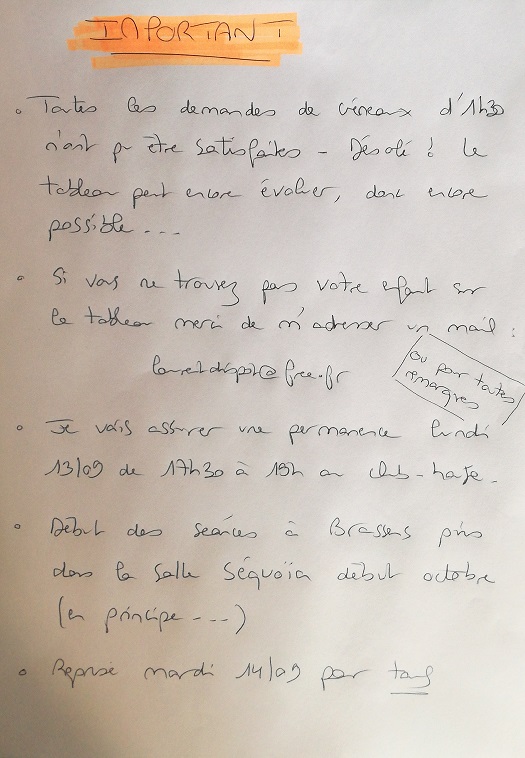 IMPORTANT
Toutes les demandes de créneaux d'1h30
n'ont pu être satisfaites - Désolé ! le
tableau peut encore évoluer, donc encore
possible...
Si vous ne trouvez pas votre enfant sur
le tableau merci de m'adresser un mail :
@free.fr
ou pour toutes
remarques
Je vais assurer une permanence lundi
13/09 de 17h30 à 19h au club-house.
Début des séances à Brassens puis
dans la salle Séquoïa début octobre
(en principe...)
Reprise mardi 14/09 pour tous